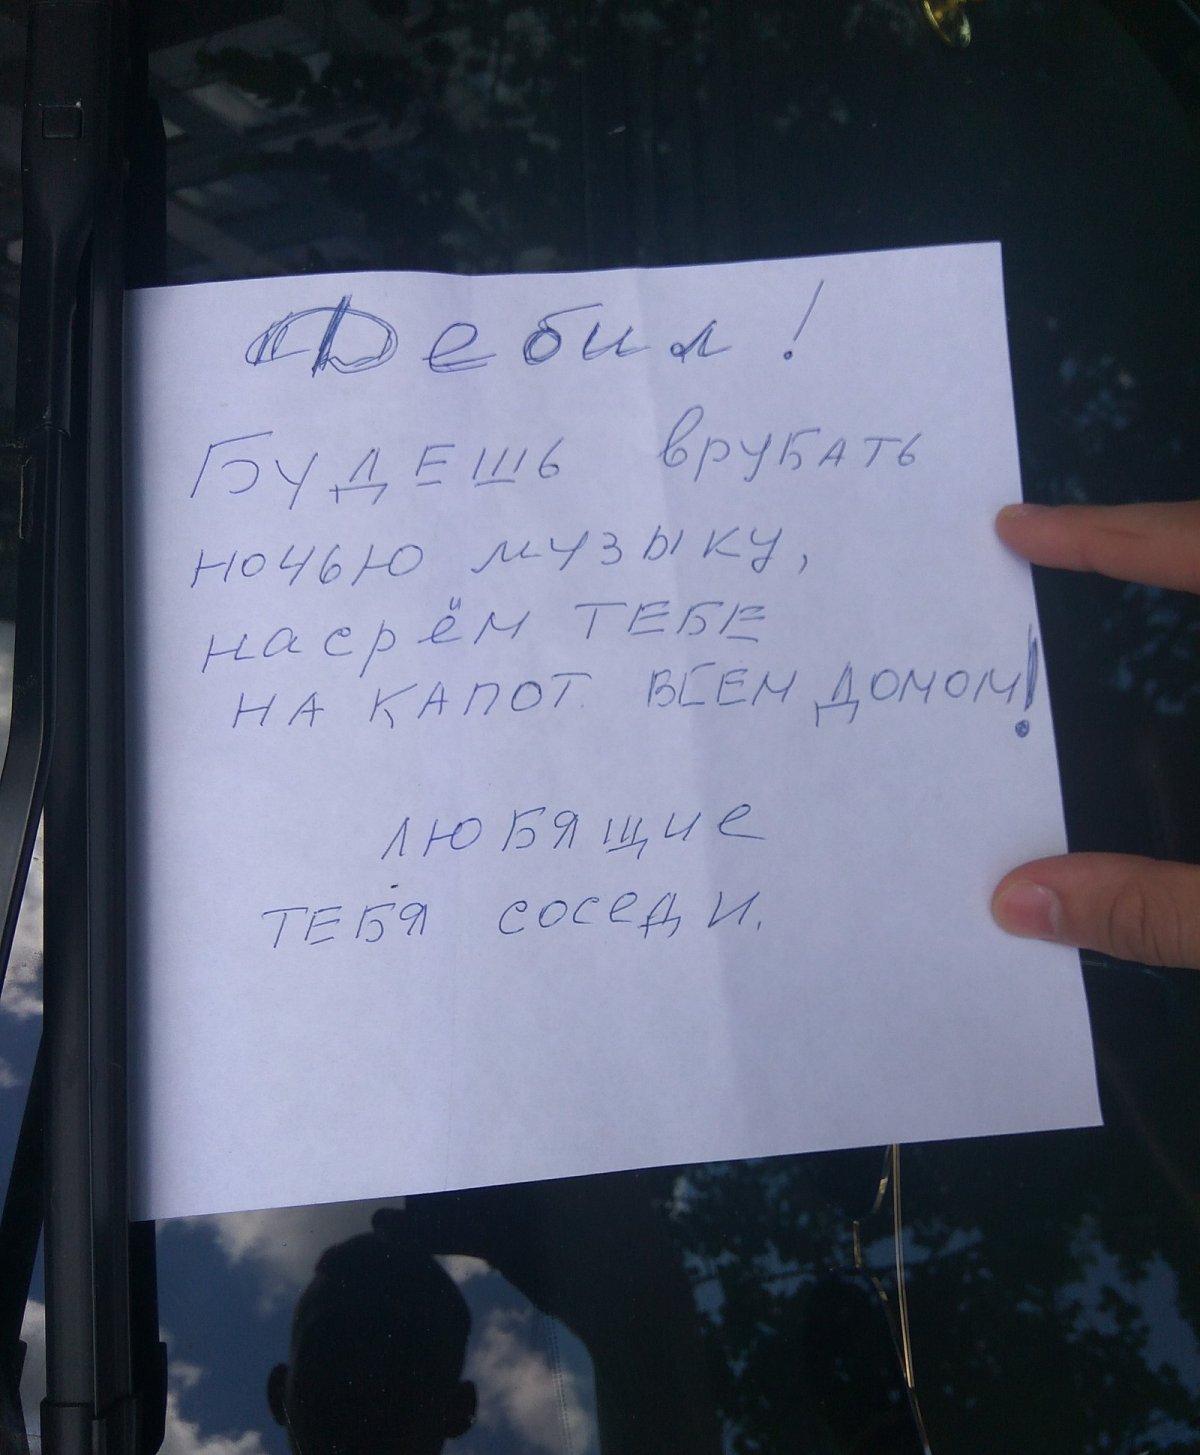 Дебил!
Будешь врубать
ночью музыку,
насрём тебе
на капот всем домом!
любящие
тебя соседи.